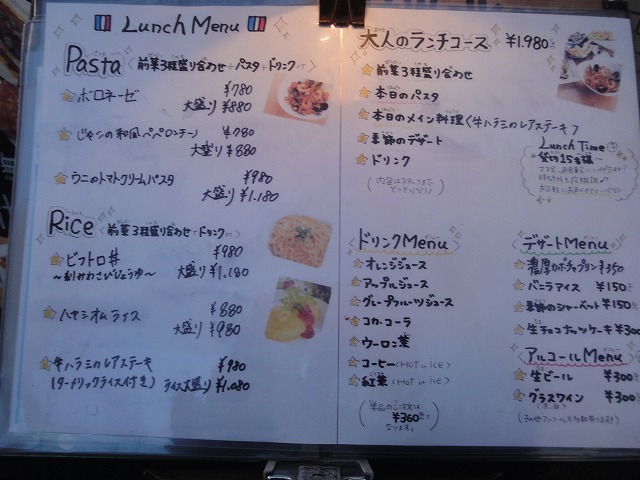 Lunch Menu
Pasta 〈前菜3種盛り合わせ+パスタ+ドリンク付〉
ボロネーゼ ¥780
大盛り ¥880
じゃこの和風ペペロンチーノ ¥780
大盛り ¥880
ウニのトマトクリームパスタ ¥980
大盛り ¥1,180
Rice 〈前菜3種盛り合わせ+ドリンク付〉
ビフトロ丼 ¥980
大盛り ¥1,180
ハヤシオムライス ¥880
大盛り ¥980
牛ハラミのレアステーキ ¥980
(ガーリックライス付き) ライス大盛り ¥1,080
大人のランチコース ¥1,980
前菜3種盛り合わせ
本日のパスタ
本日のメイン料理(牛ハラミのレアステーキ)
季節のデザート
ドリンク
(内容はスタッフまで
Lunch Time
貸切15名様~
ドリンクMenu
オレンジジュース
アップルジュース
グレープフルーツジュース
コカ・コーラ
ウーロン茶
コーヒー(HOT or ICE)
紅茶(HOT or ICE)
単品のご注文は
¥360
なります。
デザートMenu
濃厚カボチャプリン ¥350
バニラアイス ¥150
季節のシャーベット ¥150
生チョコナッツケーキ ¥300
アルコールMenu
生ビール ¥300
グラスワイン ¥300